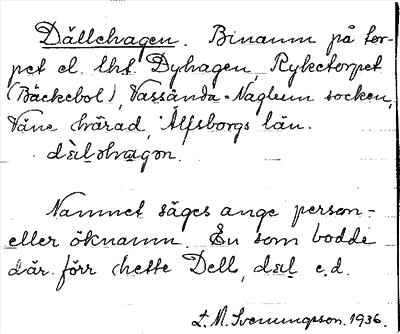 Dällehagen. Binamn på tor-
pet el. lht. Dyhagen, Ryketorpet
(Bäckebol), Vassända-Naglum socken,
Väne härad, Älfsborgs län.
Namnet säges ange person-
eller öknamn. En som bodde
där förr hette Dell, e.d.
L. M. Svenungsson. 1936.